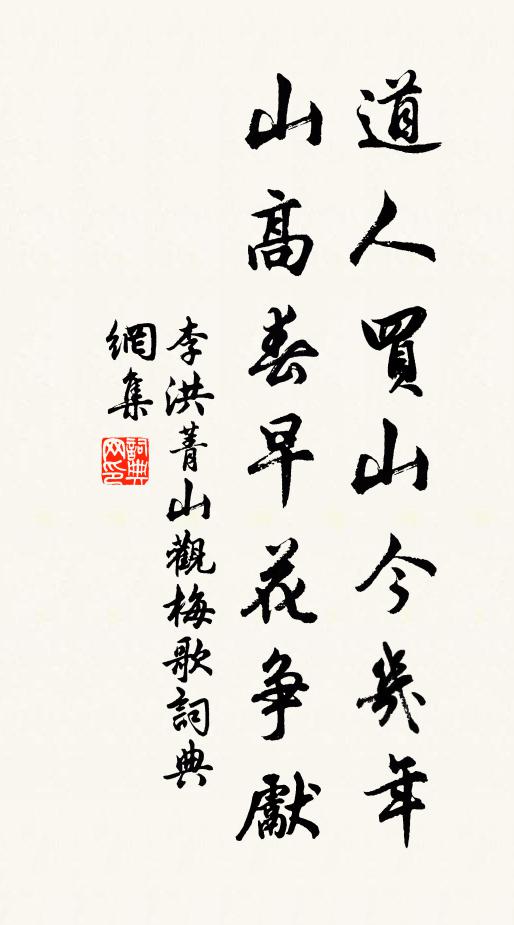 道人買山今幾年
山高春早花爭獻
李洪菁山觀梅歌詞典
網集
詞典網印